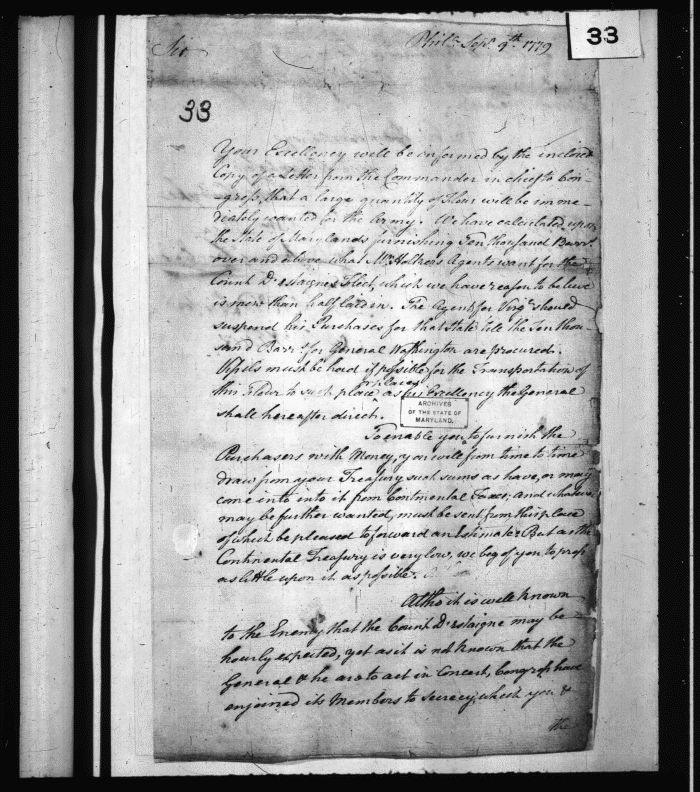 33
Sir
Phila. Sepr. 9th. 1779
33
Your Excellency will be informed by the inclosed
Copy of a Letter from the Commander in chief to Con-
-gress, that a large quantity of Flour will be imme-
diately wanted for the Army. We have calculated upon
the State of Marylands furnishing Ten thousand Barrs.
over and above what Mr. Holkers Agents want for the
Count D'estaigns Fleet, which we have reason to believe
is more than half laden. The Agent for Virga. should
suspend his Purchases for that State till the Ten thou
sand Barrs. for General Washington are procured.
Vessels must be hired if possible for the Transportation of
or places
this Flour to such place as his Excellency the General
shall hereafter direct.
ARCHIVES
OF THE STATE OF
MARYLAND.
To enable you to furnish the
Purchasers with Money, you will from time to time
draw from your Treasury such sums as have, or may
come into into it from Continental Taxes; and whatever
may be further wanted, must be sent from this place
of which be pleased to forward an Estimate: But as the
Continental Treasury is very low, we beg of you to press
as little upon it as possible.
Altho it is well known
to the Enemy that the Count D'estaigne may be
hourly expected, yet as it is not known that the
General & he are to act in Concert, Congress have
enjoined its Members to secrecy, which you &
the